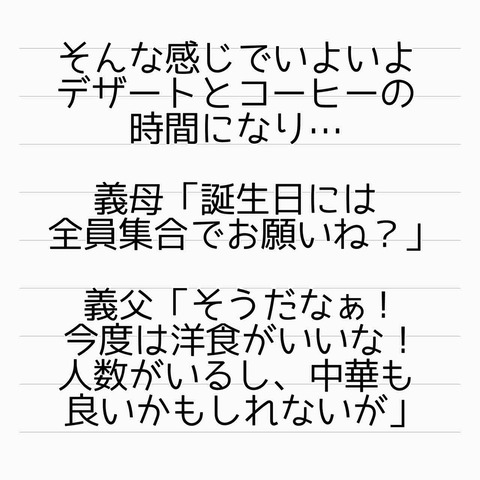 そんな感じでいよいよ
デザートとコーヒーの
時間になり…
義母「誕生日には
全員集合でお願いね？」
義父「そうだなぁ！
今度は洋食がいいな！
人数がいるし、中華も
良いかもしれないが」